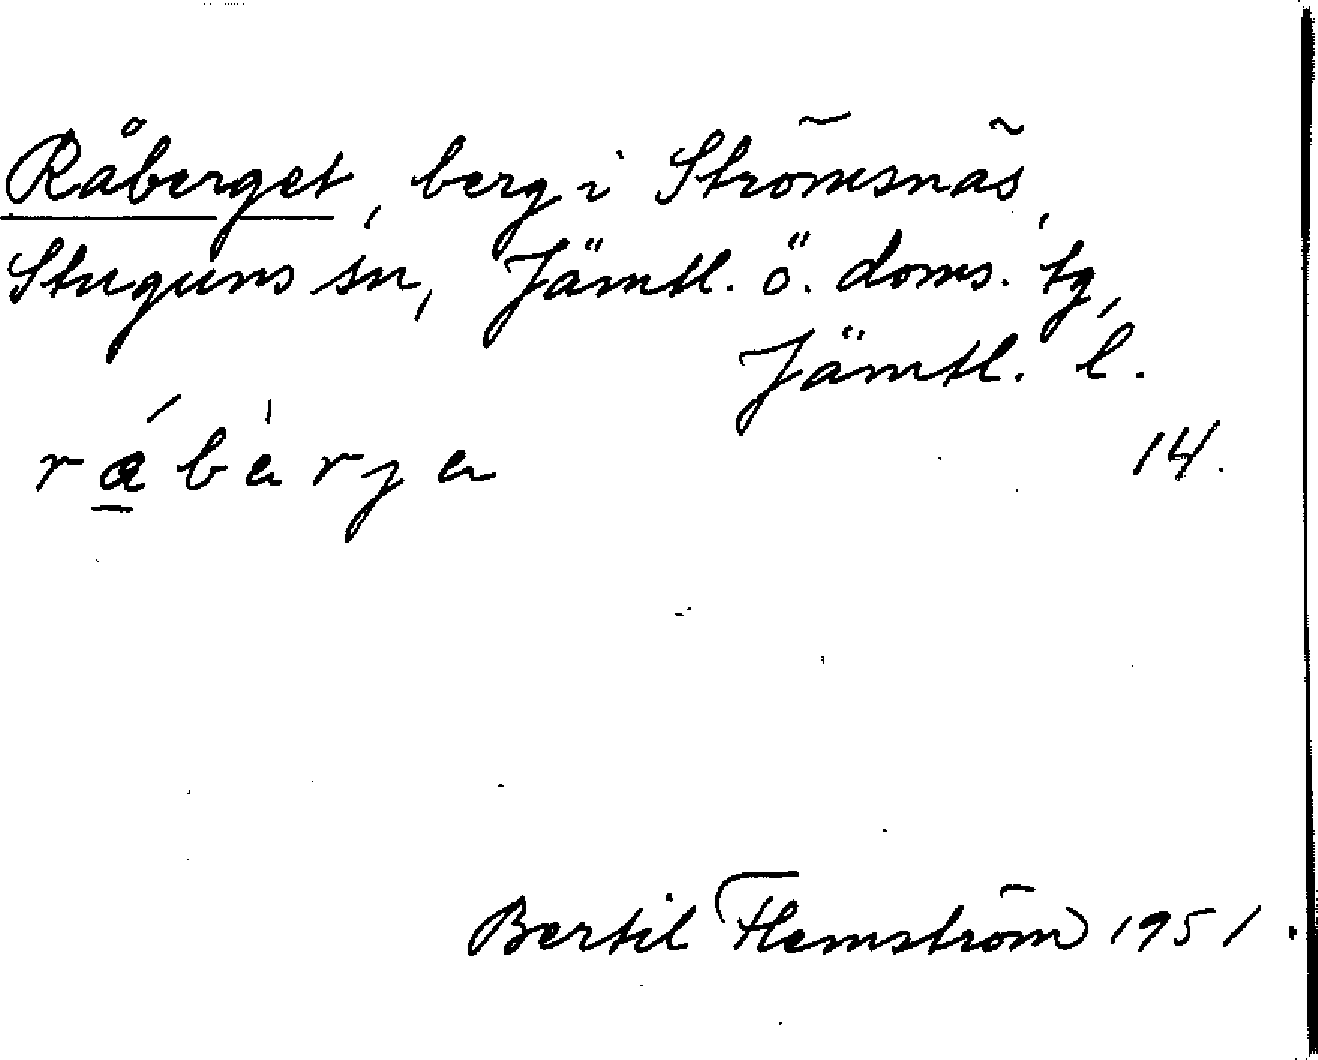 Råberget, berg i Strömsnäs,
Stuguns sn, Jämtl. ö. doms. tg,
Jämtl. l.
14.
Bertil Flemström 1951.